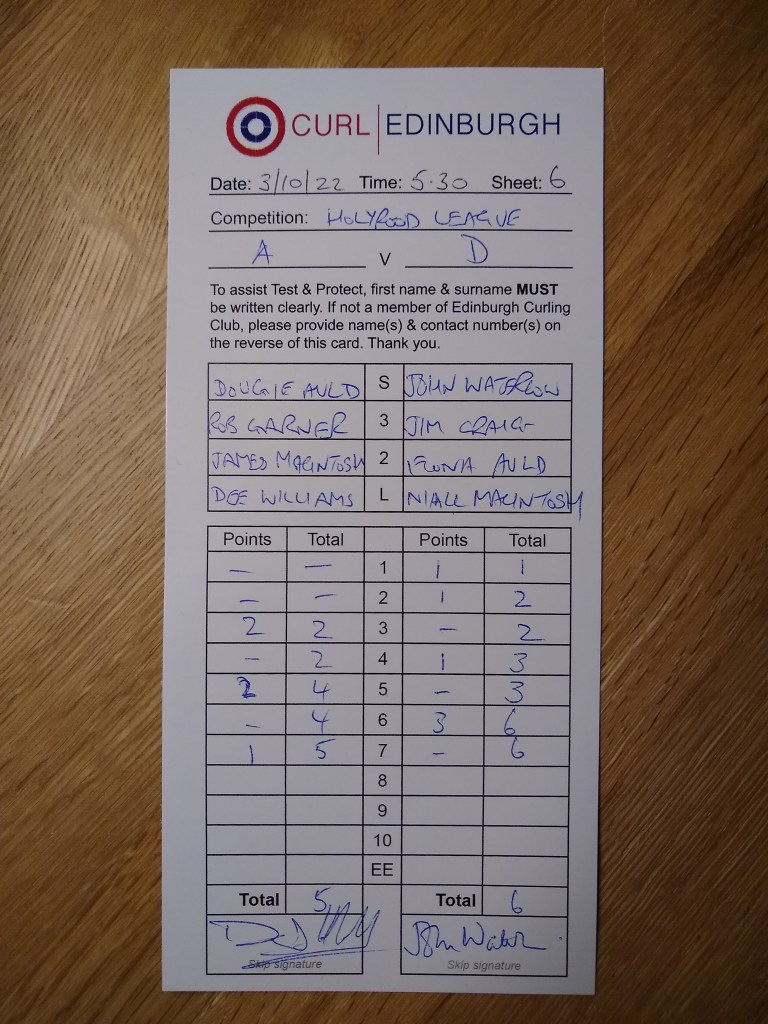 CURL EDINBURGH
Date: 3/10/22 Time: 5.30 Sheet: 6
Competition: HOLYROOD LEAGUE
A V D
To assist Test & Protect, first name & surname MUST
be written clearly. If not a member of Edinburgh Curling
Club, please provide name(s) & contact number(s) on
the reverse of this card. Thank you.
DOUGIE AULD S JOHN WATERLOW
ROB GARNER 3 JIM CRAIG
JAMES MACINTOSH 2 FIONA AULD
DEE WILLIAMS L NIALL MACINTOSH
Points Total Points Total
– – 1 1 1
– – 2 1 2
2 2 3 – 2
– 2 4 1 3
2 4 5 – 3
– 4 6 3 6
1 5 7 – 6
8
9
10
EE
Total 5 Total 6
John
Skip signature Skip signature